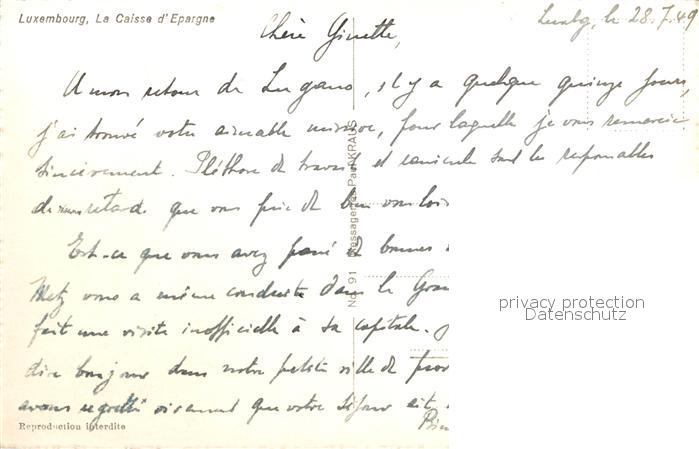 Luxembourg, La Caisse d'Epargne
Luxbg, le 28.7.49
Chère Ginette,
A mon retour de Lugano, il y a quelque quinze jours,
j'ai trouvé votre aimable missive, pour laquelle je vous remercie
sincèrement. Pléthore de travail et canicule sont les responsables
de mon retard que vous
Est-ce que vous avez passé de bonnes
Metz vous a même conduite dans le Gran
fait une visite inofficielle à sa capitale.
dire bonjour dans notre petite ville de prov
avons regretté vivement que votre séjour ait
No. 91 Messageries Paul KRAUS
privacy protection
Datenschutz
Reproduction interdite